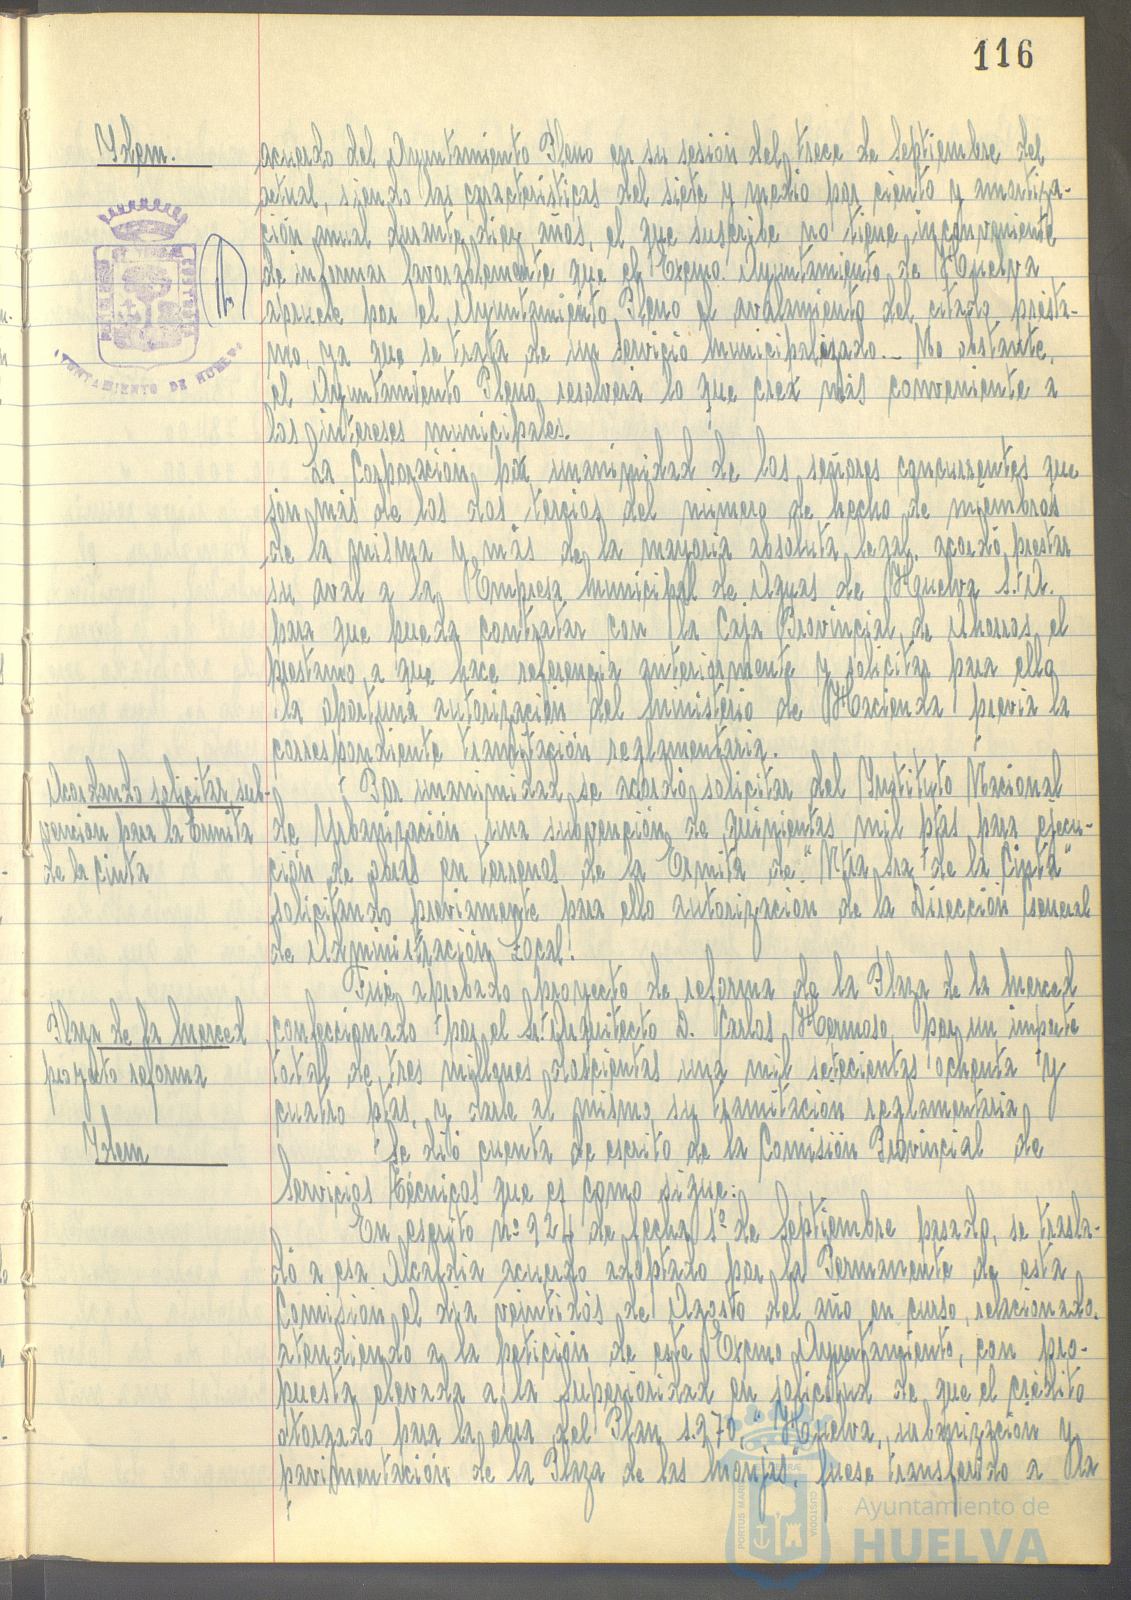 116
Idem.
acuerdo del Ayuntamiento Pleno en su sesión del trece de Septiembre del
actual, siendo las características del siete y medio por ciento y amortiza-
ción anual durante diez años, el que suscribe no tiene inconveniente
de informar favorablemente que el Excmo. Ayuntamiento de Huelva,
apruebe por el Ayuntamiento Pleno el avalamiento del citado présta-
mo, ya que se trata de un servicio municipalizado.- No obstante,
el Ayuntamiento Pleno resolverá lo que crea más conveniente a
los intereses municipales.
La Corporación por unanimidad de los señores concurrentes que
son más de los dos tercios del número de hecho de miembros
de la misma y más de la mayoría absoluta legal, acordó prestar
su aval a la Empresa Municipal de Aguas de Huelva S.A.
para que pueda contratar con la Caja Provincial de Ahorros el
prestamo a que hace referencia anteriormente y solicitar para ello
la oportuna autorización del Ministerio de Hacienda previa la
correspondiente tramitación reglamentaria.
Acordando solicitar sub-
vención para la Ermita
de la Cinta
Por unanimidad se acordó solicitar del Instituto Nacional
de Urbanización, una subvención de quinientas mil ptas para ejecu-
ción de obras en terrenos de la Ermita de "Ntra Sra de la Cinta"
solicitando previamente para ello autorización de la Dirección General
de Administración Local.
Plaza de la Merced
proyecto reforma
Fué aprobado proyecto de reforma de la Plaza de la Merced
confeccionado por el Sr. Arquitecto D. Carlos Hermoso, por un importe
total de tres millones doscientas una mil setecientas ochenta y
cuatro ptas, y darle al mismo su tramitación reglamentaria.
Idem
Se dió cuenta de escrito de la Comisión Provincial de
Servicios Técnicos que es como sigue:
En escrito nº 924 de fecha 1º de Septiembre pasado, se trasla-
dó a esa Alcaldía acuerdo adoptado por la Permanente de esta
Comisión el día veintidós de Agosto del año en curso, relacionado,
atendiendo a la petición de este Excmo Ayuntamiento, con pro-
puesta elevada a la Superioridad en solicitud de que el crédito
otorgado para la obra del Plan 1.970 "Huelva, urbanización y
pavimentación de la Plaza de las Monjas", fuese transferido a la
AYUNTAMIENTO DE HUELVA
PORTUS MARIS
CUSTODIA
Ayuntamiento de
HUELVA